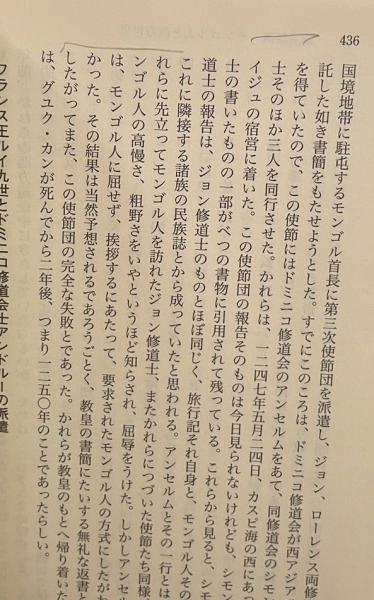 436
国境地帯に駐屯するモンゴル首長に第三次使節団を派遣し、ジョン、ローレンス両修
託した如き書簡をもたせようとした。すでにこのころは、ドミニコ修道会が西アジア
を得ていたので、この使節にはドミニコ修道会のアンセルムをあて、同修道会のシモン
士そのほか三人を同行させた。かれらは、一二四七年五月二四日、カスピ海の西にあっ
イジュの宿営に着いた。この使節団の報告そのものは今日見られないけれども、シモン
士の書いたものの一部がべつの書物に引用されて残っている。これから見ると、シモ
道士の報告は、ジョン修道士のものとほぼ同じく、旅行記それ自身と、モンゴル人その
これに隣接する諸族の民族誌とから成っていたと思われる。アンセルムとその一行とは
れらに先立ってモンゴル人を訪れたジョン修道士、またかれらにつづいた使節たち同様
ンゴル人の高慢さ、粗野さをいやというほど知らされ、屈辱をうけた。しかしアンセル
は、モンゴル人に屈せず、挨拶するにあたって、要求されたモンゴル人の方式にしたがわ
かった。その結果は当然予想されるであろうごとく、教皇の書簡にたいする無礼な返書と
したがってまた、この使節団の完全な失敗とであった。かれらが教皇のもとへ帰り着いた
は、グユク・カンが死んでから二年後、つまり一二五〇年のことであったらしい。
フランス王ルイ九世とドミニコ修道会士アンドルーの派遣